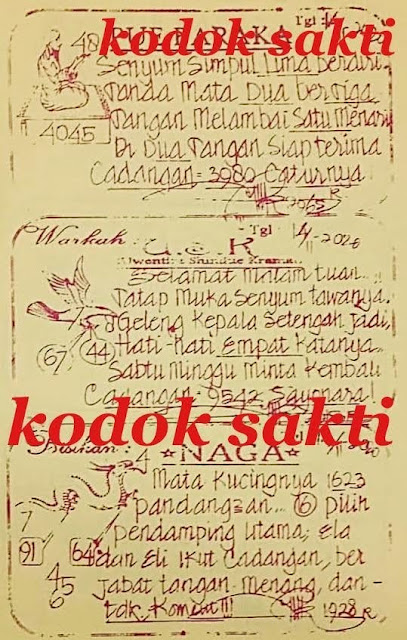 kodok sakti
48
Tgl
Senyum Simpul Lima Berdiri
Tanda Mata Dua bertiga
4045
Tangan Melambai Satu Menari
Di Dua Tangan Siap terima
Cadangan = 3980 Caturnya
Warkah :
Tgl
Selamat Malam tuan...
Tatap Muka Senyum tawanya.
Geleng Kepala Setengah Jadi,
67 44 Hati-Hati Empat Katanya
Sabtu Minggu Minta Kembali
Cadangan = 9542 Sayonara!
kodok sakti
Bisikan :
4
NAGA
Mata Kucingnya 1623
pandangan... 6 pilih
7
pendamping utama; Ela
91 64 dan Eli Ikut Cadangan, ber
45
jabat tangan. Menang, dan -
6
tdk. Komcat!!! 1928